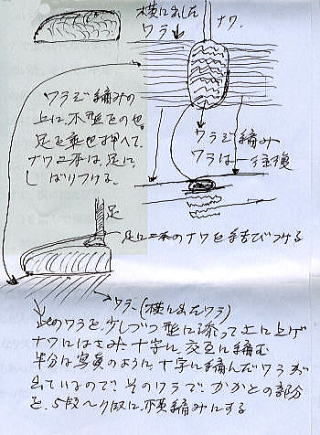 横に出した
ワラ
ナワ
ワラぞ編みの
上に、木型をのせ
足を乗せ押へて、
ナワ二本は、足に、
しばりつける。
ワラぞ編み
ワラは一往復
足
足に二本のナワを結びつける
ワラ (横に出たワラ)
此のワラを、少しづつ型に添って上に上げ
ナワにはさみ十字に、交互に編む
半分は写真のように十字に編んだワラが
出ているので、そのワラで、かかとの部分
を、5段〜7段に横編みにする